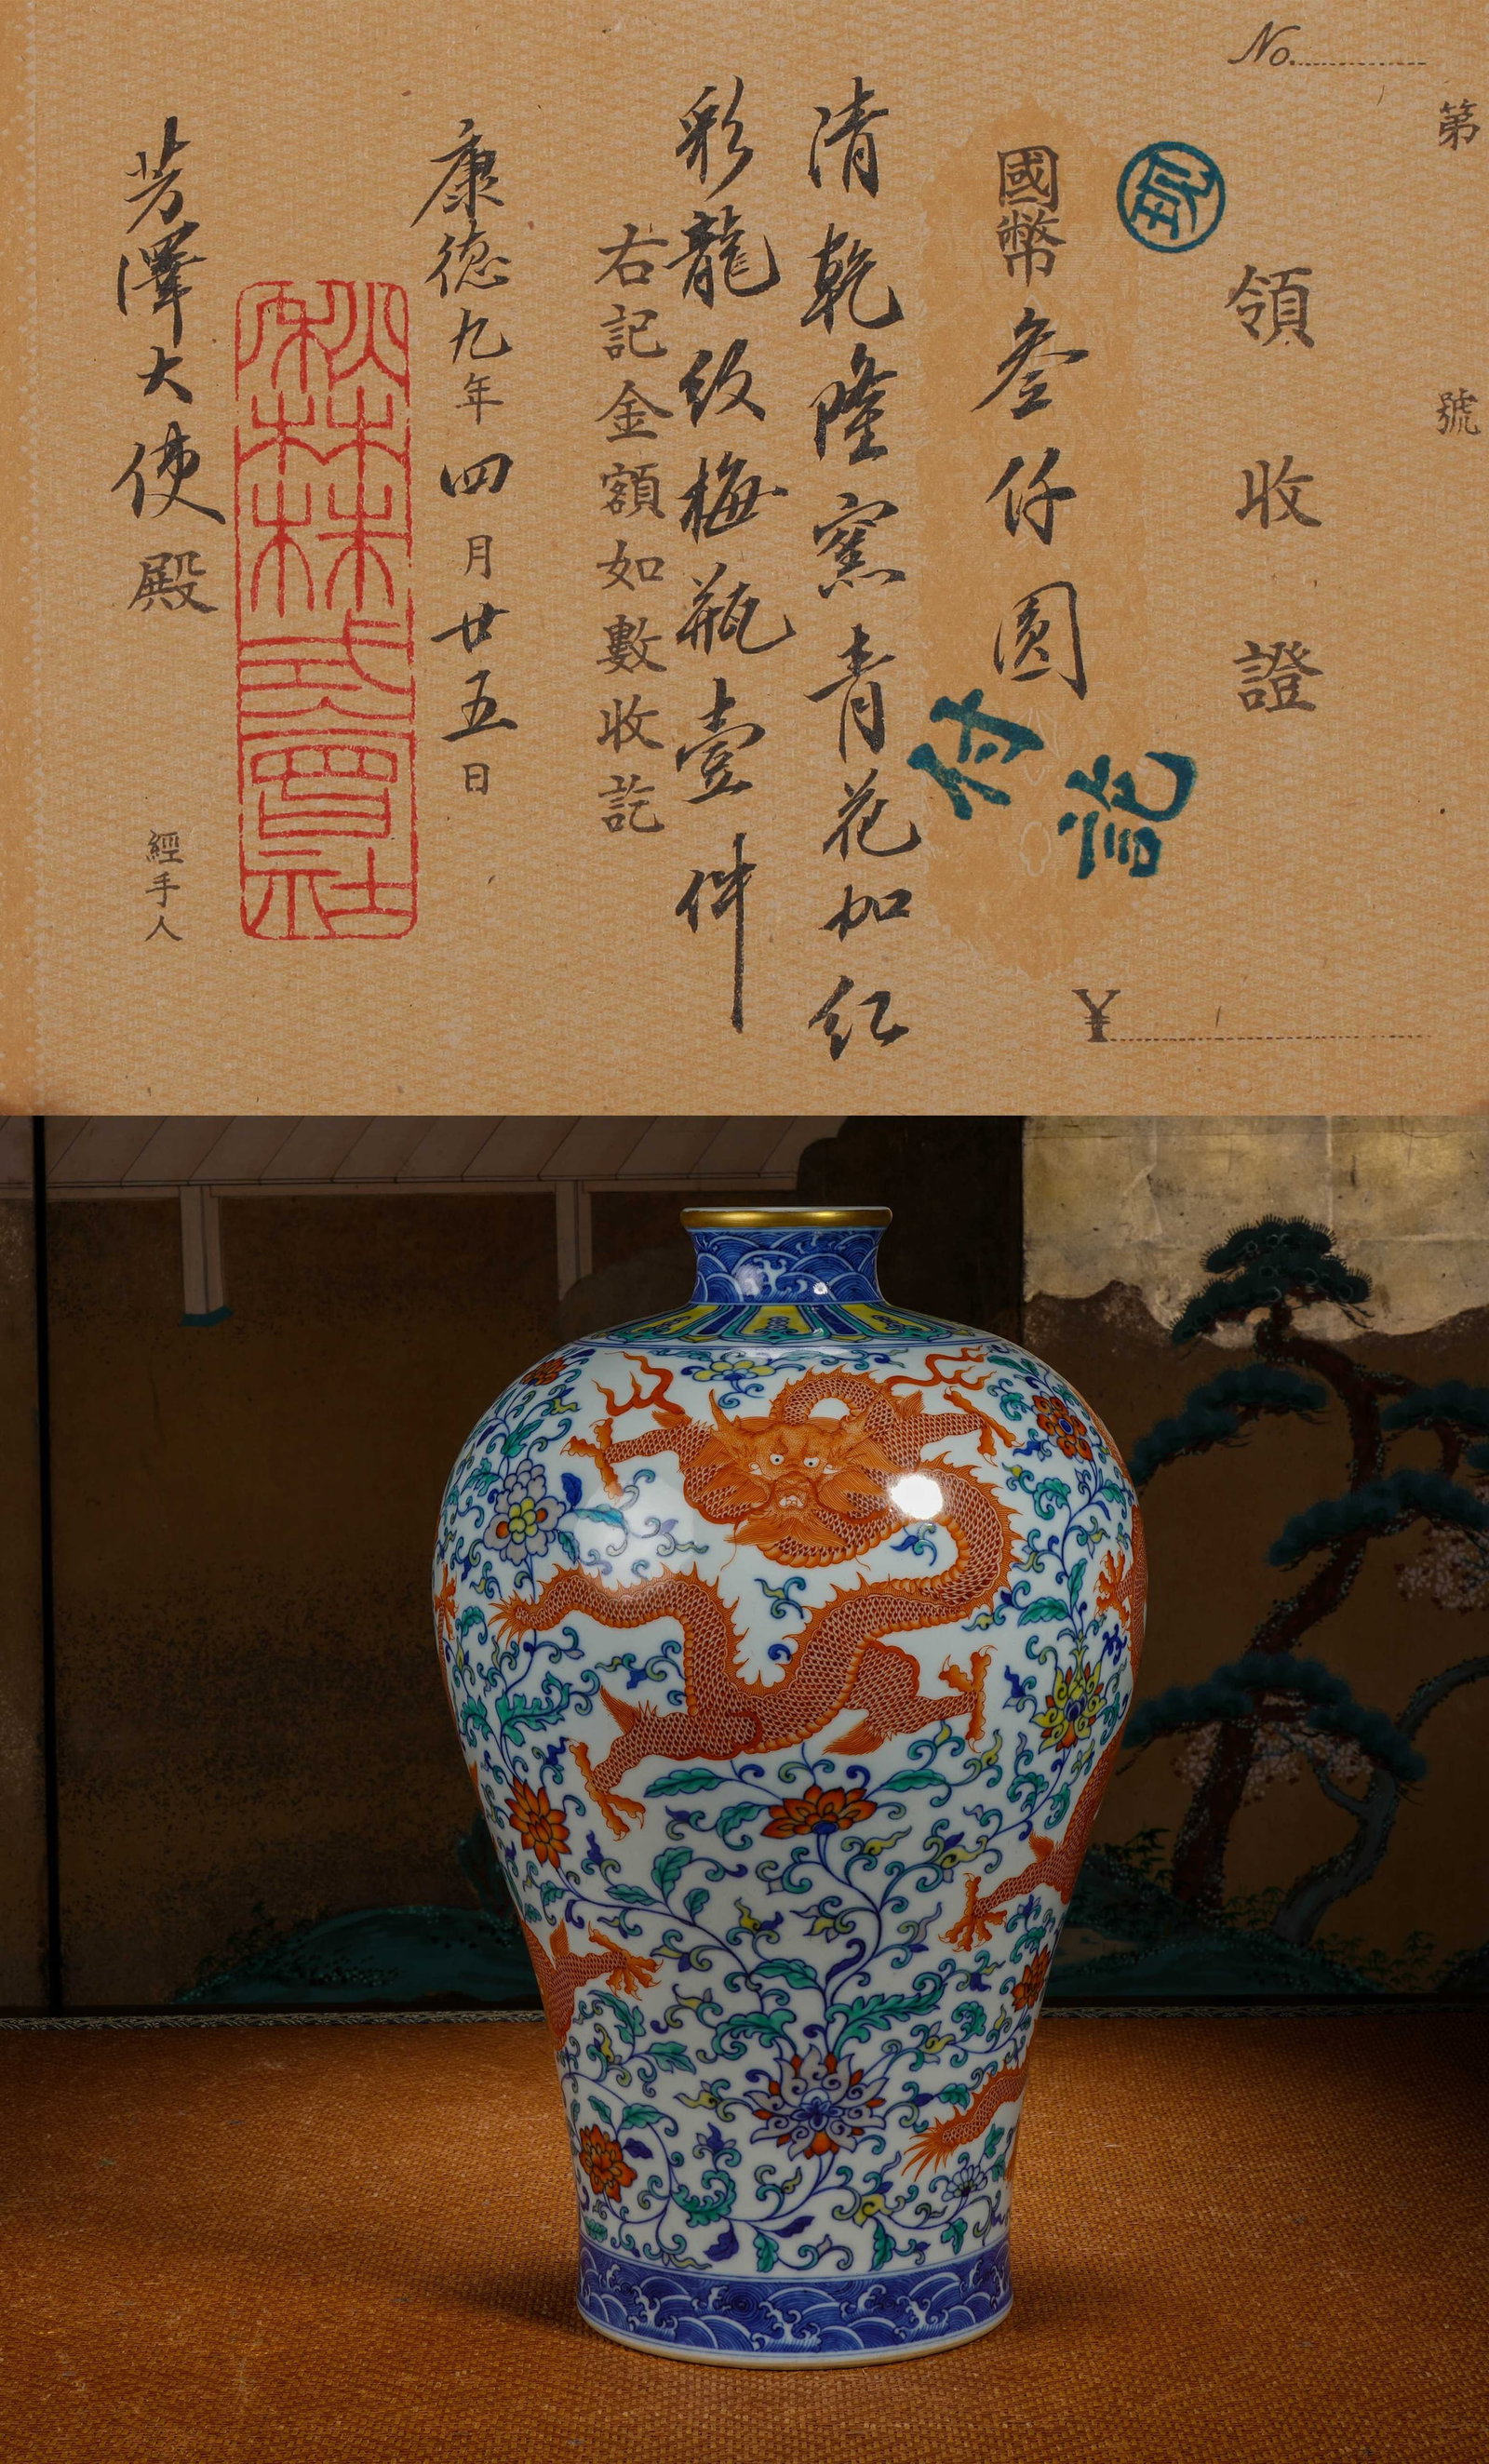 第 號
No.
領收證
¥
國幣叁仟圆
付訖
清乾隆窯青花加红
彩龍纹梅瓶壹件
右記金額如數收訖
康德九年四月廿五日
秋林株式會社
芳澤大使殿
經手人